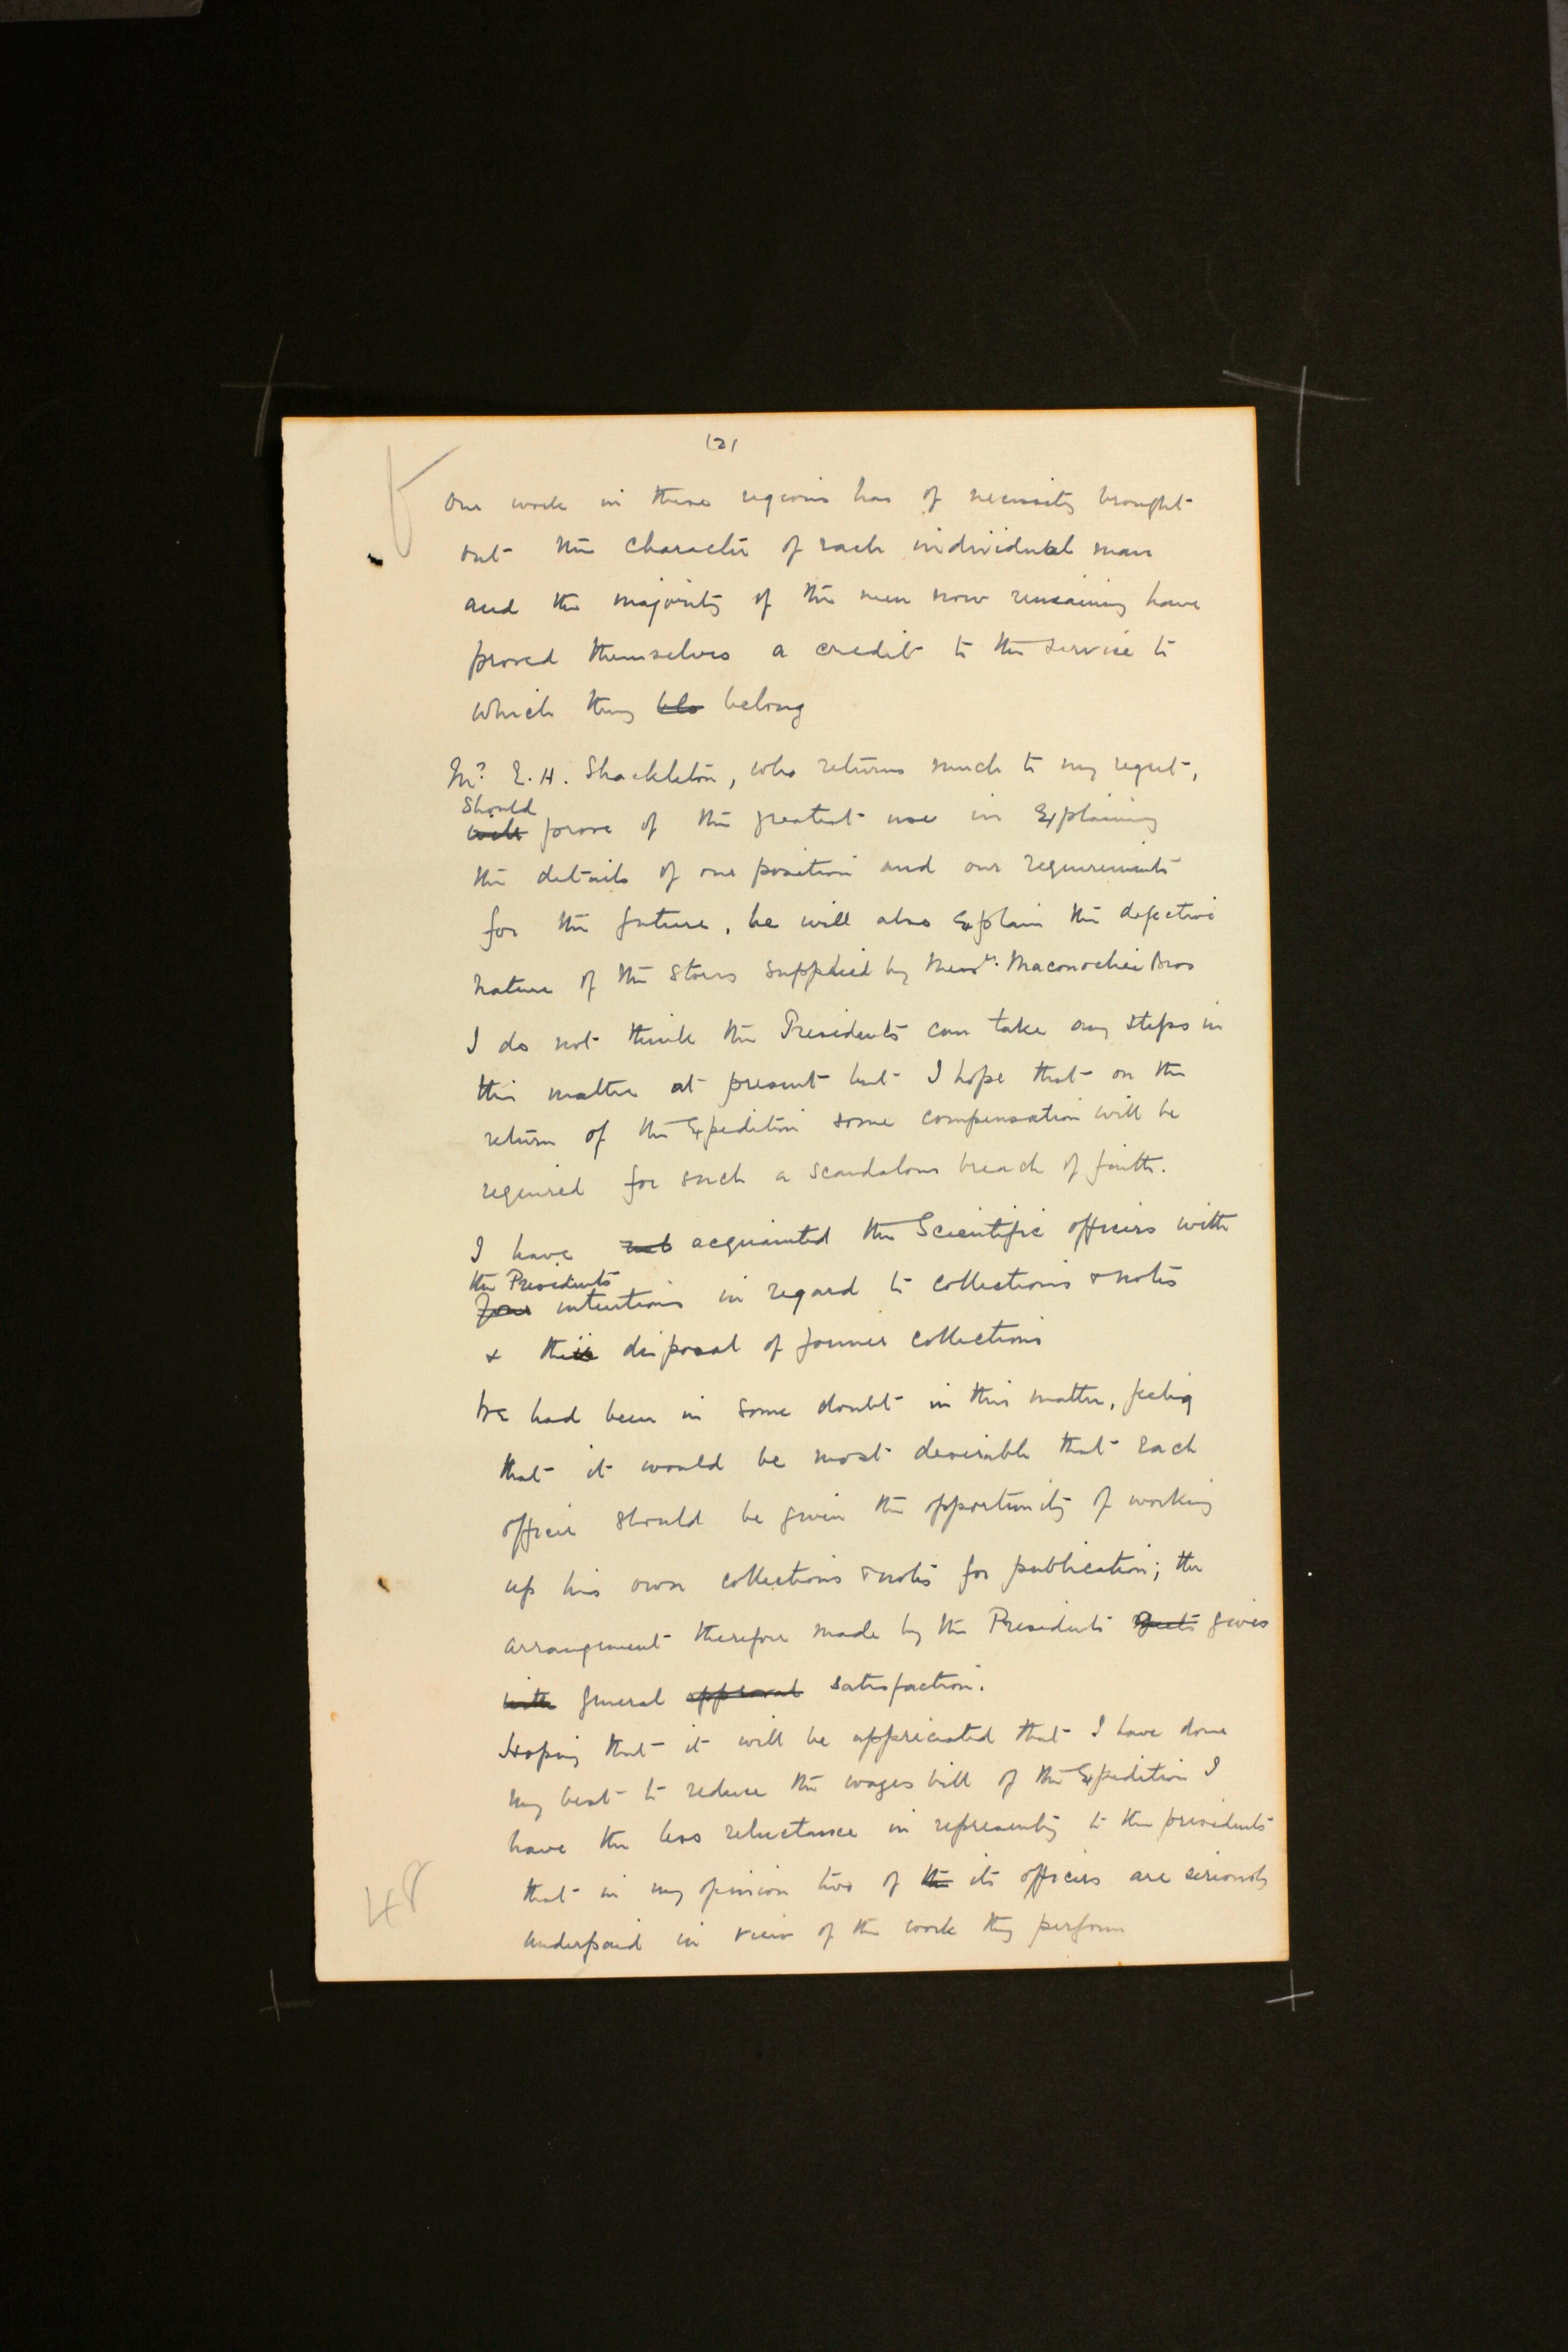 (2)
Our work in these regions has of necessity brought
out the character of each individual man
and the majority of the men now remaining have
proved themselves a credit to the service to
which they blo belong
Mr. E. H. Shackleton, who returns much to my regret,
should
will prove of the greatest use in explaining
the details of our position and our requirements
for the future, he will also explain the defective
nature of the stores supplied by Messrs. Maconochie Bros
I do not think the Presidents can take any steps in
this matter at present but I hope that on the
return of the Expedition some compensation will be
required for such a scandalous breach of faith.
I have acquainted the Scientific officers with
the Presidents
Your intentions in regard to collections & notes
& the disposal of former collections
We had been in some doubt in this matter, feeling
that it would be most desirable that each
officer should be given the opportunity of working
up his own collections & notes for publication; the
arrangement therefore made by the Presidents gives
with general approval satisfaction.
Hoping that it will be appreciated that I have done
my best to reduce the wages bill of the Expedition I
have the less reluctance in representing to the presidents
that in my opinion two of the its officers are seriously
underpaid in view of the work they perform
48